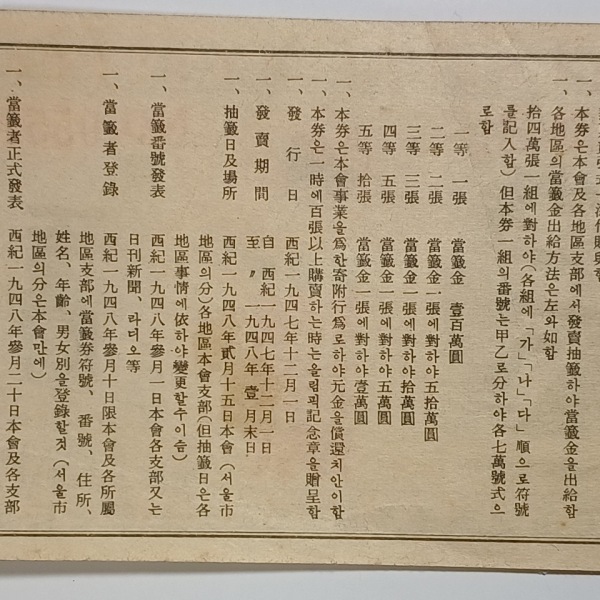 一、本券은本會及各地區支部에서發賣抽籤하야當籤金을出給함
一、各地區의當籤金出給方法은左와如함
拾四萬張一組에對하야(各組에「가」「나」「다」順으로符號
를記入함)但本券一組의番號는甲乙로分하야各七萬號式으
로함
一等 一張 當籤金 壹百萬圓
二等 二張 當籤金一張에對하야五拾萬圓
三等 三張 當籤金一張에對하야拾萬圓
四等 五張 當籤金一張에對하야五萬圓
五等 拾張 當籤金一張에對하야壹萬圓
一、本券은本會事業을爲한寄附行爲로하야元金을償還치안이함
一、本券은一時에百張以上購賣하는時는올림픽記念章을贈呈함
一、發行日 西紀一九四七年十二月一日
一、發賣期間 自 西紀一九四七年十二月一日
至 〃 一九四八年 壹月末日
一、抽籤日及場所 西紀一九四八年貳月十五日本會(서울市
地區의分)各地區本會支部(但抽籤日은各
地區事情에依하야變更할수이슴)
一、當籤番號發表 西紀一九四八年參月一日本會各支部又는
日刊新聞、라디오等
一、當籤者登錄 西紀一九四八年參月十日限本會及各所屬
地區支部에當籤券符號、番號、住所、
姓名、年齡、男女別을登錄할것(서울市
地區의分은本會만에)
一、當籤者正式發表 西紀一九四八年參月二十日本會及各支部